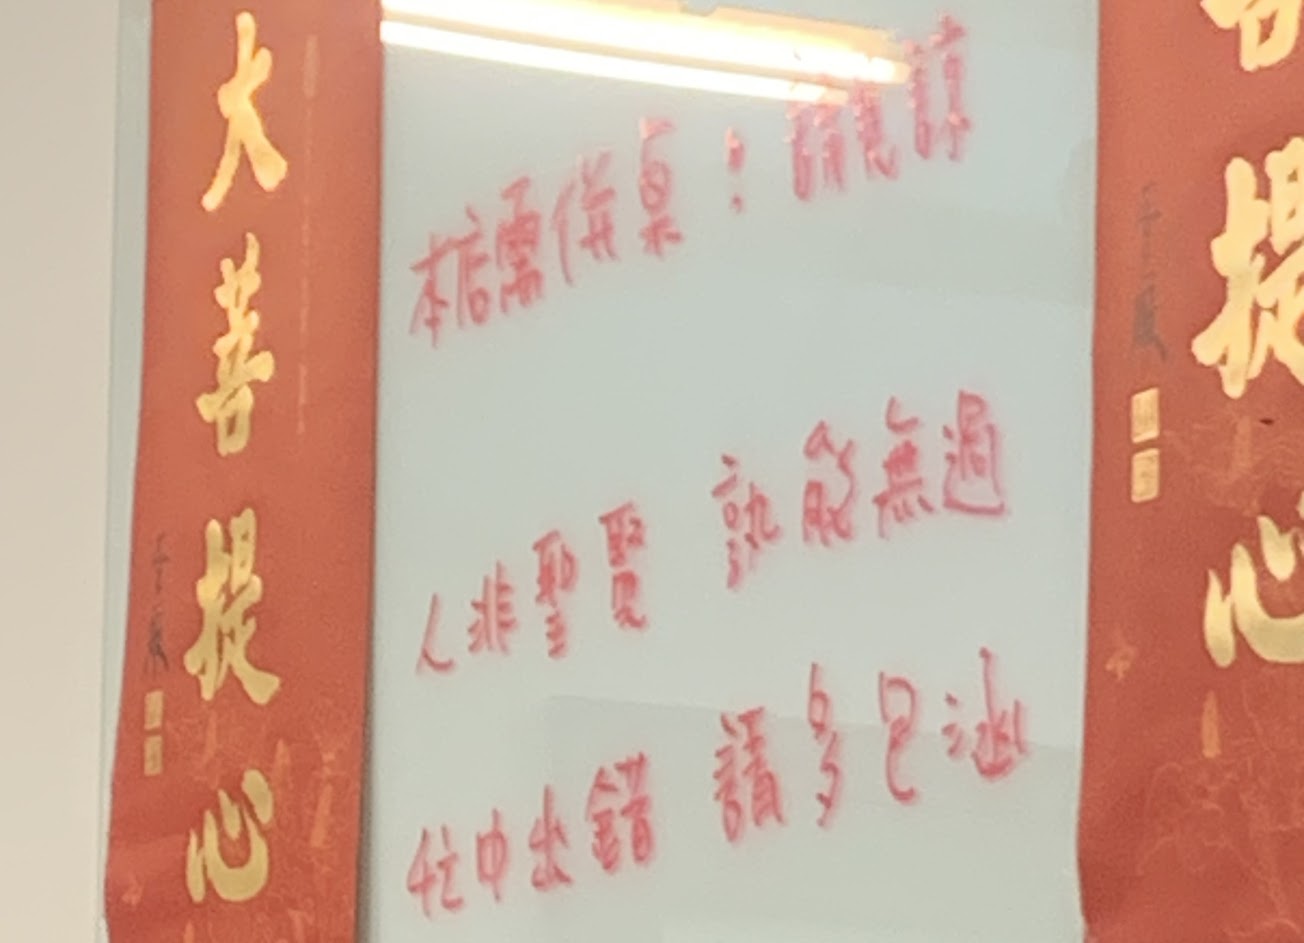 大菩提心
本店需併桌！請見諒
人非聖賢 孰能無過
忙中出錯 請多包涵
菩提心